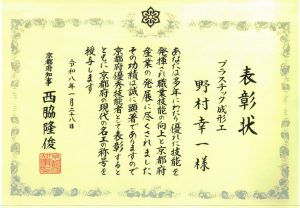 表彰状
プラスチック成形工
野村幸一様
あなたは多年にわたり優れた技能を
発揮され職業技能の向上と京都府
産業の発展に尽くされました
その功績は誠に顕著でありますので
京都府優秀技能者として表彰すると
ともに京都府の現代の名工の称号を
授与します
令和八年一月二十八日
京都府知事
西脇隆俊